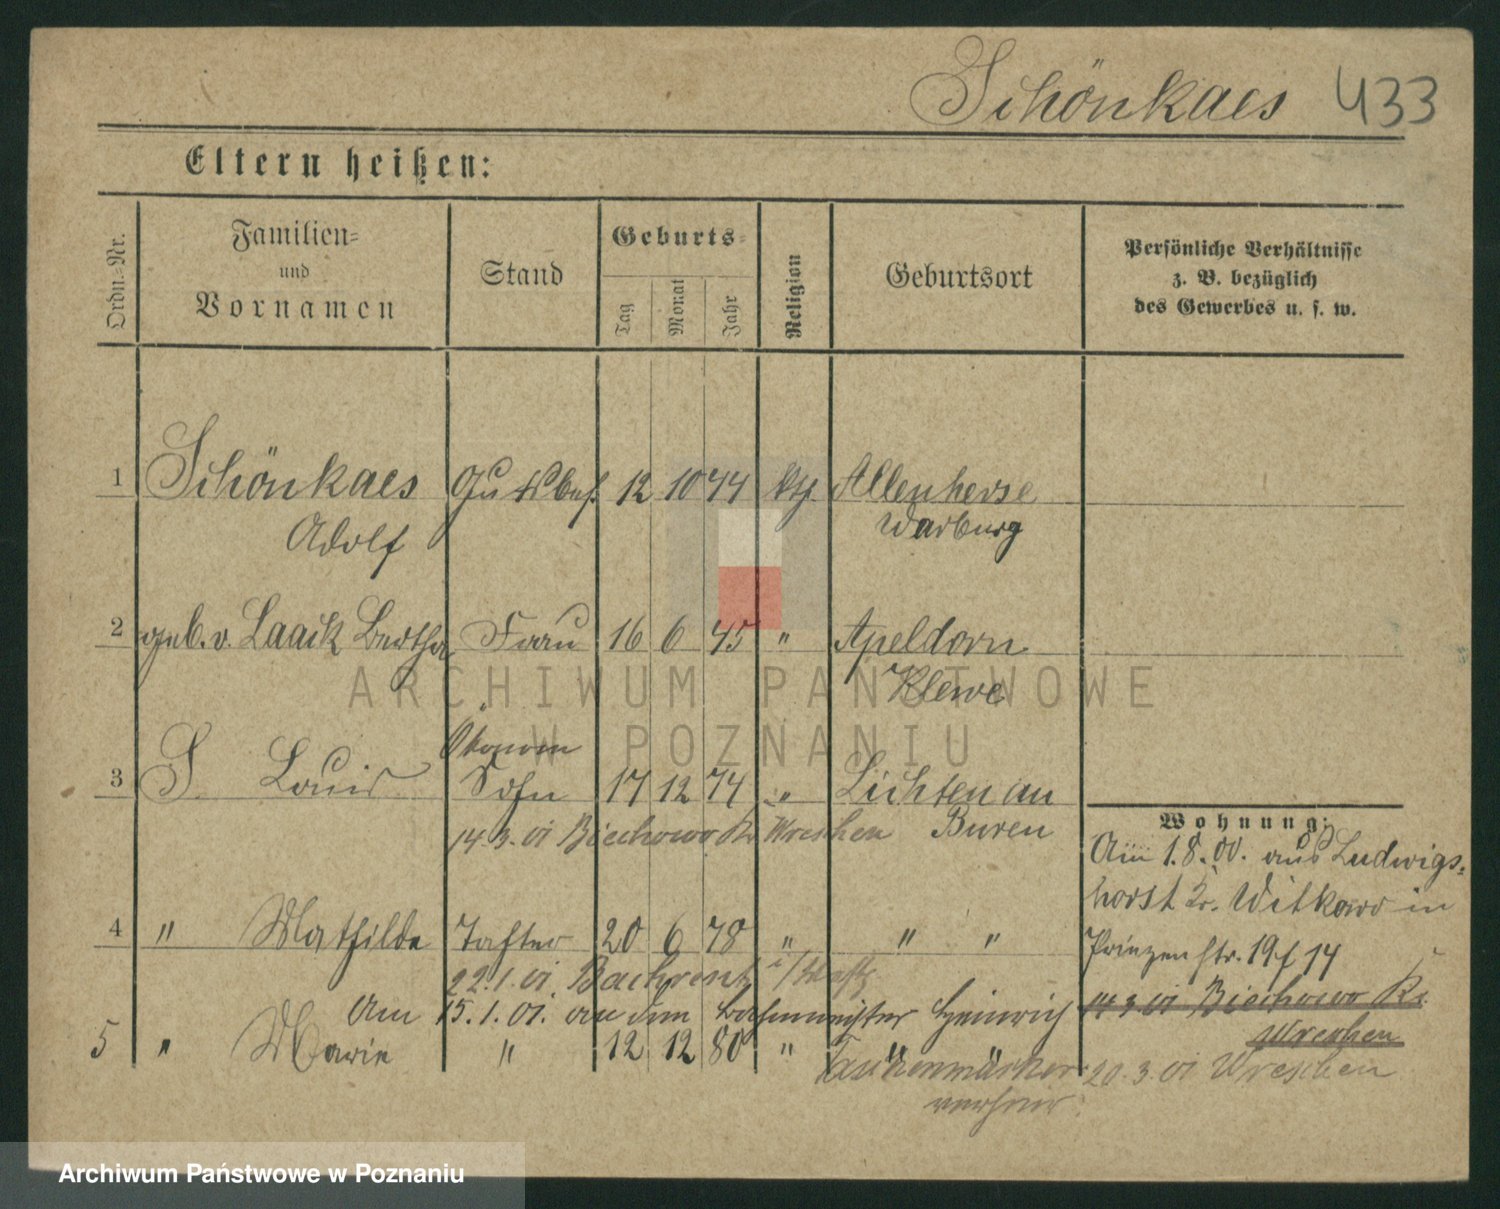 Schönkaes 433
Eltern heißen:
Ordn.=Nr.
Familien=
und
Vornamen
Stand
Geburts=
Tag
Monat
Jahr
Religion
Geburtsort
Persönliche Verhältnisse
z. B. bezüglich
des Gewerbes u. s. w.
1 Schönkaes Gutsbes. 12 10 44 kth. Allenherse
Adolf Warburg
2 geb. v. Laack Bertha Frau 16 6 45 " Apeldorn
Klewe
Ökonom
3 S. Louis Sohn 17 12 74 " Lichtenau
14.3.01 Biechowo Kr. Wreschen Buren
Wohnung:
Am 1.8.00. aus Ludwigs-
horst Kr. Witkowo in
4 " Mathilde Tochter 20 6 78 " " "
Prinzenstr. 19 f 14
22.1.01
14.3.01 Biechowo Kr.
Wreschen
Am 15.1.01. an den Heinrich
5 " Marie " 12 12 80 "
20.3.01 Wreschen
verheir.
ARCHIWUM PAŃSTWOWE
W POZNANIU
Archiwum Państwowe w Poznaniu